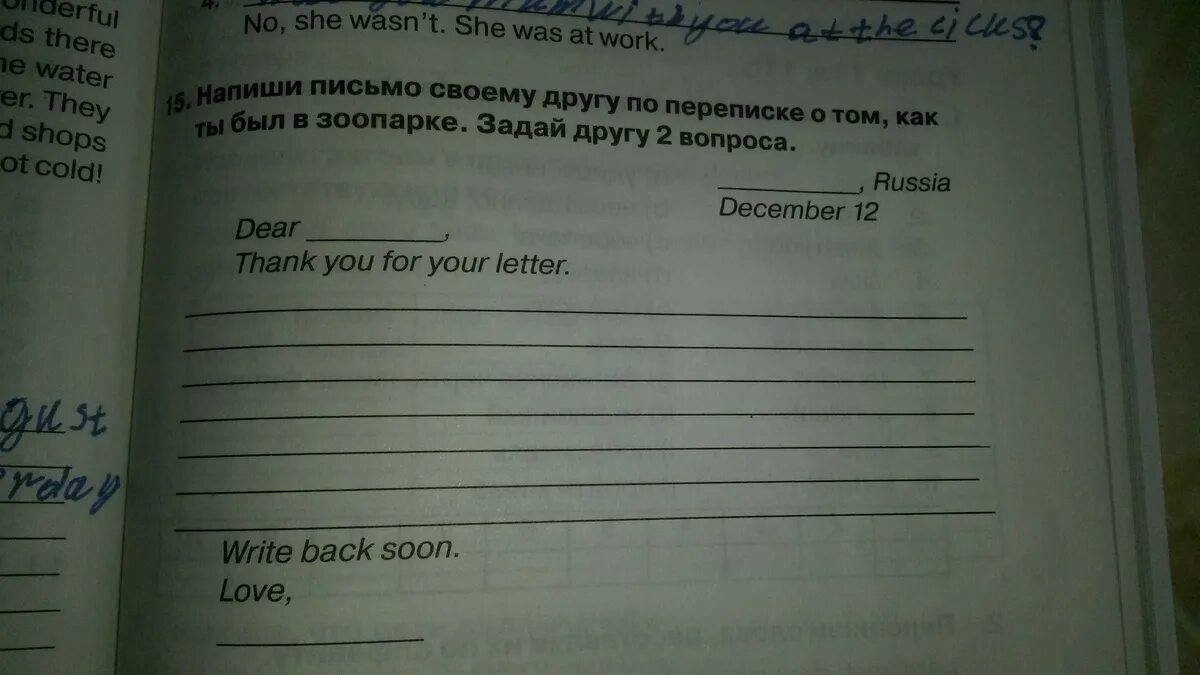 onderful
ds there
ne water
er. They
d shops
ot cold!
gust
rday
4. with you at the cicus?
No, she wasn't. She was at work.
15. Напиши письмо своему другу по переписке о том, как
ты был в зоопарке. Задай другу 2 вопроса.
, Russia
December 12
Dear ,
Thank you for your letter.
Write back soon.
Love,